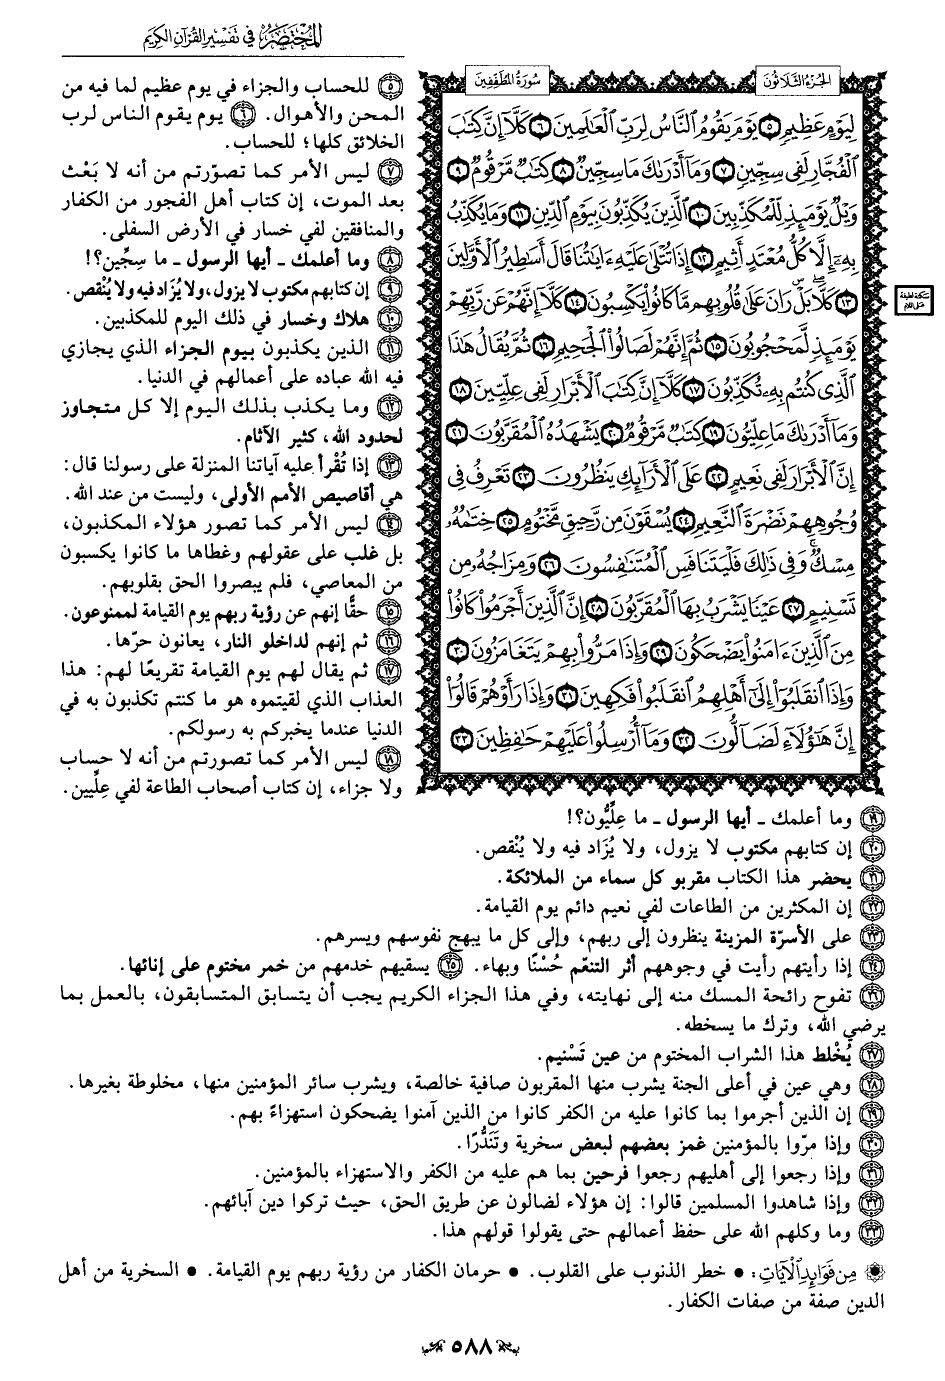 المختصر في تفسير القرآن الكريم
الجزء الثلاثون
سورة المطففين
لِيَوْمٍ عَظِيمٍ ٥ يَوْمَ يَقُومُ النَّاسُ لِرَبِّ الْعَالَمِينَ ٦ كَلَّا إِنَّ كِتَابَ
الْفُجَّارِ لَفِي سِجِّينٍ ٧ وَمَا أَدْرَاكَ مَا سِجِّينٌ ٨ كِتَابٌ مَّرْقُومٌ ٩
وَيْلٌ يَوْمَئِذٍ لِّلْمُكَذِّبِينَ ١٠ الَّذِينَ يُكَذِّبُونَ بِيَوْمِ الدِّينِ ١١ وَمَا يُكَذِّبُ
بِهِ إِلَّا كُلُّ مُعْتَدٍ أَثِيمٍ ١٢ إِذَا تُتْلَىٰ عَلَيْهِ ءَايَاتُنَا قَالَ أَسَاطِيرُ الْأَوَّلِينَ
١٣ كَلَّا ۖ بَلْ ۜ رَانَ عَلَىٰ قُلُوبِهِم مَّا كَانُوا يَكْسِبُونَ ١٤ كَلَّا إِنَّهُمْ عَن رَّبِّهِمْ
يَوْمَئِذٍ لَّمَحْجُوبُونَ ١٥ ثُمَّ إِنَّهُمْ لَصَالُوا الْجَحِيمِ ١٦ ثُمَّ يُقَالُ هَٰذَا
الَّذِي كُنتُم بِهِ تُكَذِّبُونَ ١٧ كَلَّا إِنَّ كِتَابَ الْأَبْرَارِ لَفِي عِلِّيِّينَ ١٨
وَمَا أَدْرَاكَ مَا عِلِّيُّونَ ١٩ كِتَابٌ مَّرْقُومٌ ٢٠ يَشْهَدُهُ الْمُقَرَّبُونَ ٢١
إِنَّ الْأَبْرَارَ لَفِي نَعِيمٍ ٢٢ عَلَى الْأَرَائِكِ يَنظُرُونَ ٢٣ تَعْرِفُ فِي
وُجُوهِهِمْ نَضْرَةَ النَّعِيمِ ٢٤ يُسْقَوْنَ مِن رَّحِيقٍ مَّخْتُومٍ ٢٥ خِتَامُهُ
مِسْكٌ ۚ وَفِي ذَٰلِكَ فَلْيَتَنَافَسِ الْمُتَنَافِسُونَ ٢٦ وَمِزَاجُهُ مِن
تَسْنِيمٍ ٢٧ عَيْنًا يَشْرَبُ بِهَا الْمُقَرَّبُونَ ٢٨ إِنَّ الَّذِينَ أَجْرَمُوا كَانُوا
مِنَ الَّذِينَ ءَامَنُوا يَضْحَكُونَ ٢٩ وَإِذَا مَرُّوا بِهِمْ يَتَغَامَزُونَ ٣٠
وَإِذَا انقَلَبُوا إِلَىٰ أَهْلِهِمُ انقَلَبُوا فَكِهِينَ ٣١ وَإِذَا رَأَوْهُمْ قَالُوا
إِنَّ هَٰؤُلَاءِ لَضَالُّونَ ٣٢ وَمَا أُرْسِلُوا عَلَيْهِمْ حَافِظِينَ ٣٣
٥ للحساب والجزاء في يوم عظيم لما فيه من
المحن والأهوال. ٦ يوم يقوم الناس لرب
الخلائق كلها؛ للحساب.
٧ ليس الأمر كما تصوّرتم من أنه لا بَعْث
بعد الموت، إن كتاب أهل الفجور من الكفار
والمنافقين لفي خسار في الأرض السفلى.
٨ وما أعلمك ـ أيها الرسول ـ ما سِجِّين؟!
٩ إن كتابهم مكتوب لا يزول، ولا يُزَاد فيه ولا يُنْقص.
١٠ هلاك وخسار في ذلك اليوم للمكذبين.
١١ الذين يكذبون بيوم الجزاء الذي يجازي
فيه الله عباده على أعمالهم في الدنيا.
١٢ وما يكذب بذلك اليوم إلا كل متجاوز
لحدود الله، كثير الآثام.
١٣ إذا تُقْرأ عليه آياتنا المنزلة على رسولنا قال:
هي أقاصيص الأمم الأولى، وليست من عند الله.
١٤ ليس الأمر كما تصور هؤلاء المكذبون،
بل غلب على عقولهم وغطاها ما كانوا يكسبون
من المعاصي، فلم يبصروا الحق بقلوبهم.
١٥ حقًّا إنهم عن رؤية ربهم يوم القيامة لممنوعون.
١٦ ثم إنهم لداخلو النار، يعانون حرّها.
١٧ ثم يقال لهم يوم القيامة تقريعًا لهم: هذا
العذاب الذي لقيتموه هو ما كنتم تكذبون به في
الدنيا عندما يخبركم به رسولكم.
١٨ ليس الأمر كما تصورتم من أنه لا حساب
ولا جزاء، إن كتاب أصحاب الطاعة لفي عِلِّيين.
١٩ وما أعلمك ـ أيها الرسول ـ ما عِلِّيُّون؟!
٢٠ إن كتابهم مكتوب لا يزول، ولا يُزَاد فيه ولا يُنْقص.
٢١ يحضر هذا الكتاب مقربو كل سماء من الملائكة.
٢٢ إن المكثرين من الطاعات لفي نعيم دائم يوم القيامة.
٢٣ على الأسرّة المزينة ينظرون إلى ربهم، وإلى كل ما يبهج نفوسهم ويسرهم.
٢٤ إذا رأيتهم رأيت في وجوههم أثر التنعّم حُسْنًا وبهاء. ٢٥ يسقيهم خدمهم من خمر مختوم على إنائها.
٢٦ تفوح رائحة المسك منه إلى نهايته، وفي هذا الجزاء الكريم يجب أن يتسابق المتسابقون، بالعمل بما
يرضي الله، وترك ما يسخطه.
٢٧ يُخْلط هذا الشراب المختوم من عين تَسْنيم.
٢٨ وهي عين في أعلى الجنة يشرب منها المقربون صافية خالصة، ويشرب سائر المؤمنين منها، مخلوطة بغيرها.
٢٩ إن الذين أجرموا بما كانوا عليه من الكفر كانوا من الذين آمنوا يضحكون استهزاءً بهم.
٣٠ وإذا مرّوا بالمؤمنين غمز بعضهم لبعض سخرية وتَنَدُّرًا.
٣١ وإذا رجعوا إلى أهليهم رجعوا فرحين بما هم عليه من الكفر والاستهزاء بالمؤمنين.
٣٢ وإذا شاهدوا المسلمين قالوا: إن هؤلاء لضالون عن طريق الحق، حيث تركوا دين آبائهم.
٣٣ وما وكلهم الله على حفظ أعمالهم حتى يقولوا قولهم هذا.
من فوائد الآيات: • خطر الذنوب على القلوب. • حرمان الكفار من رؤية ربهم يوم القيامة. • السخرية من أهل
الدين صفة من صفات الكفار.
٥٨٨